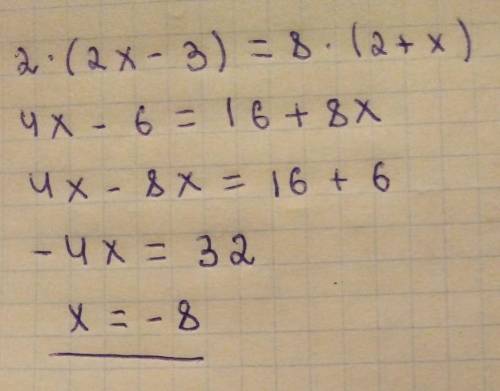 2·(2x - 3) = 8·(2 + x)
4x - 6 = 16 + 8x
4x - 8x = 16 + 6
-4x = 32
x = -8